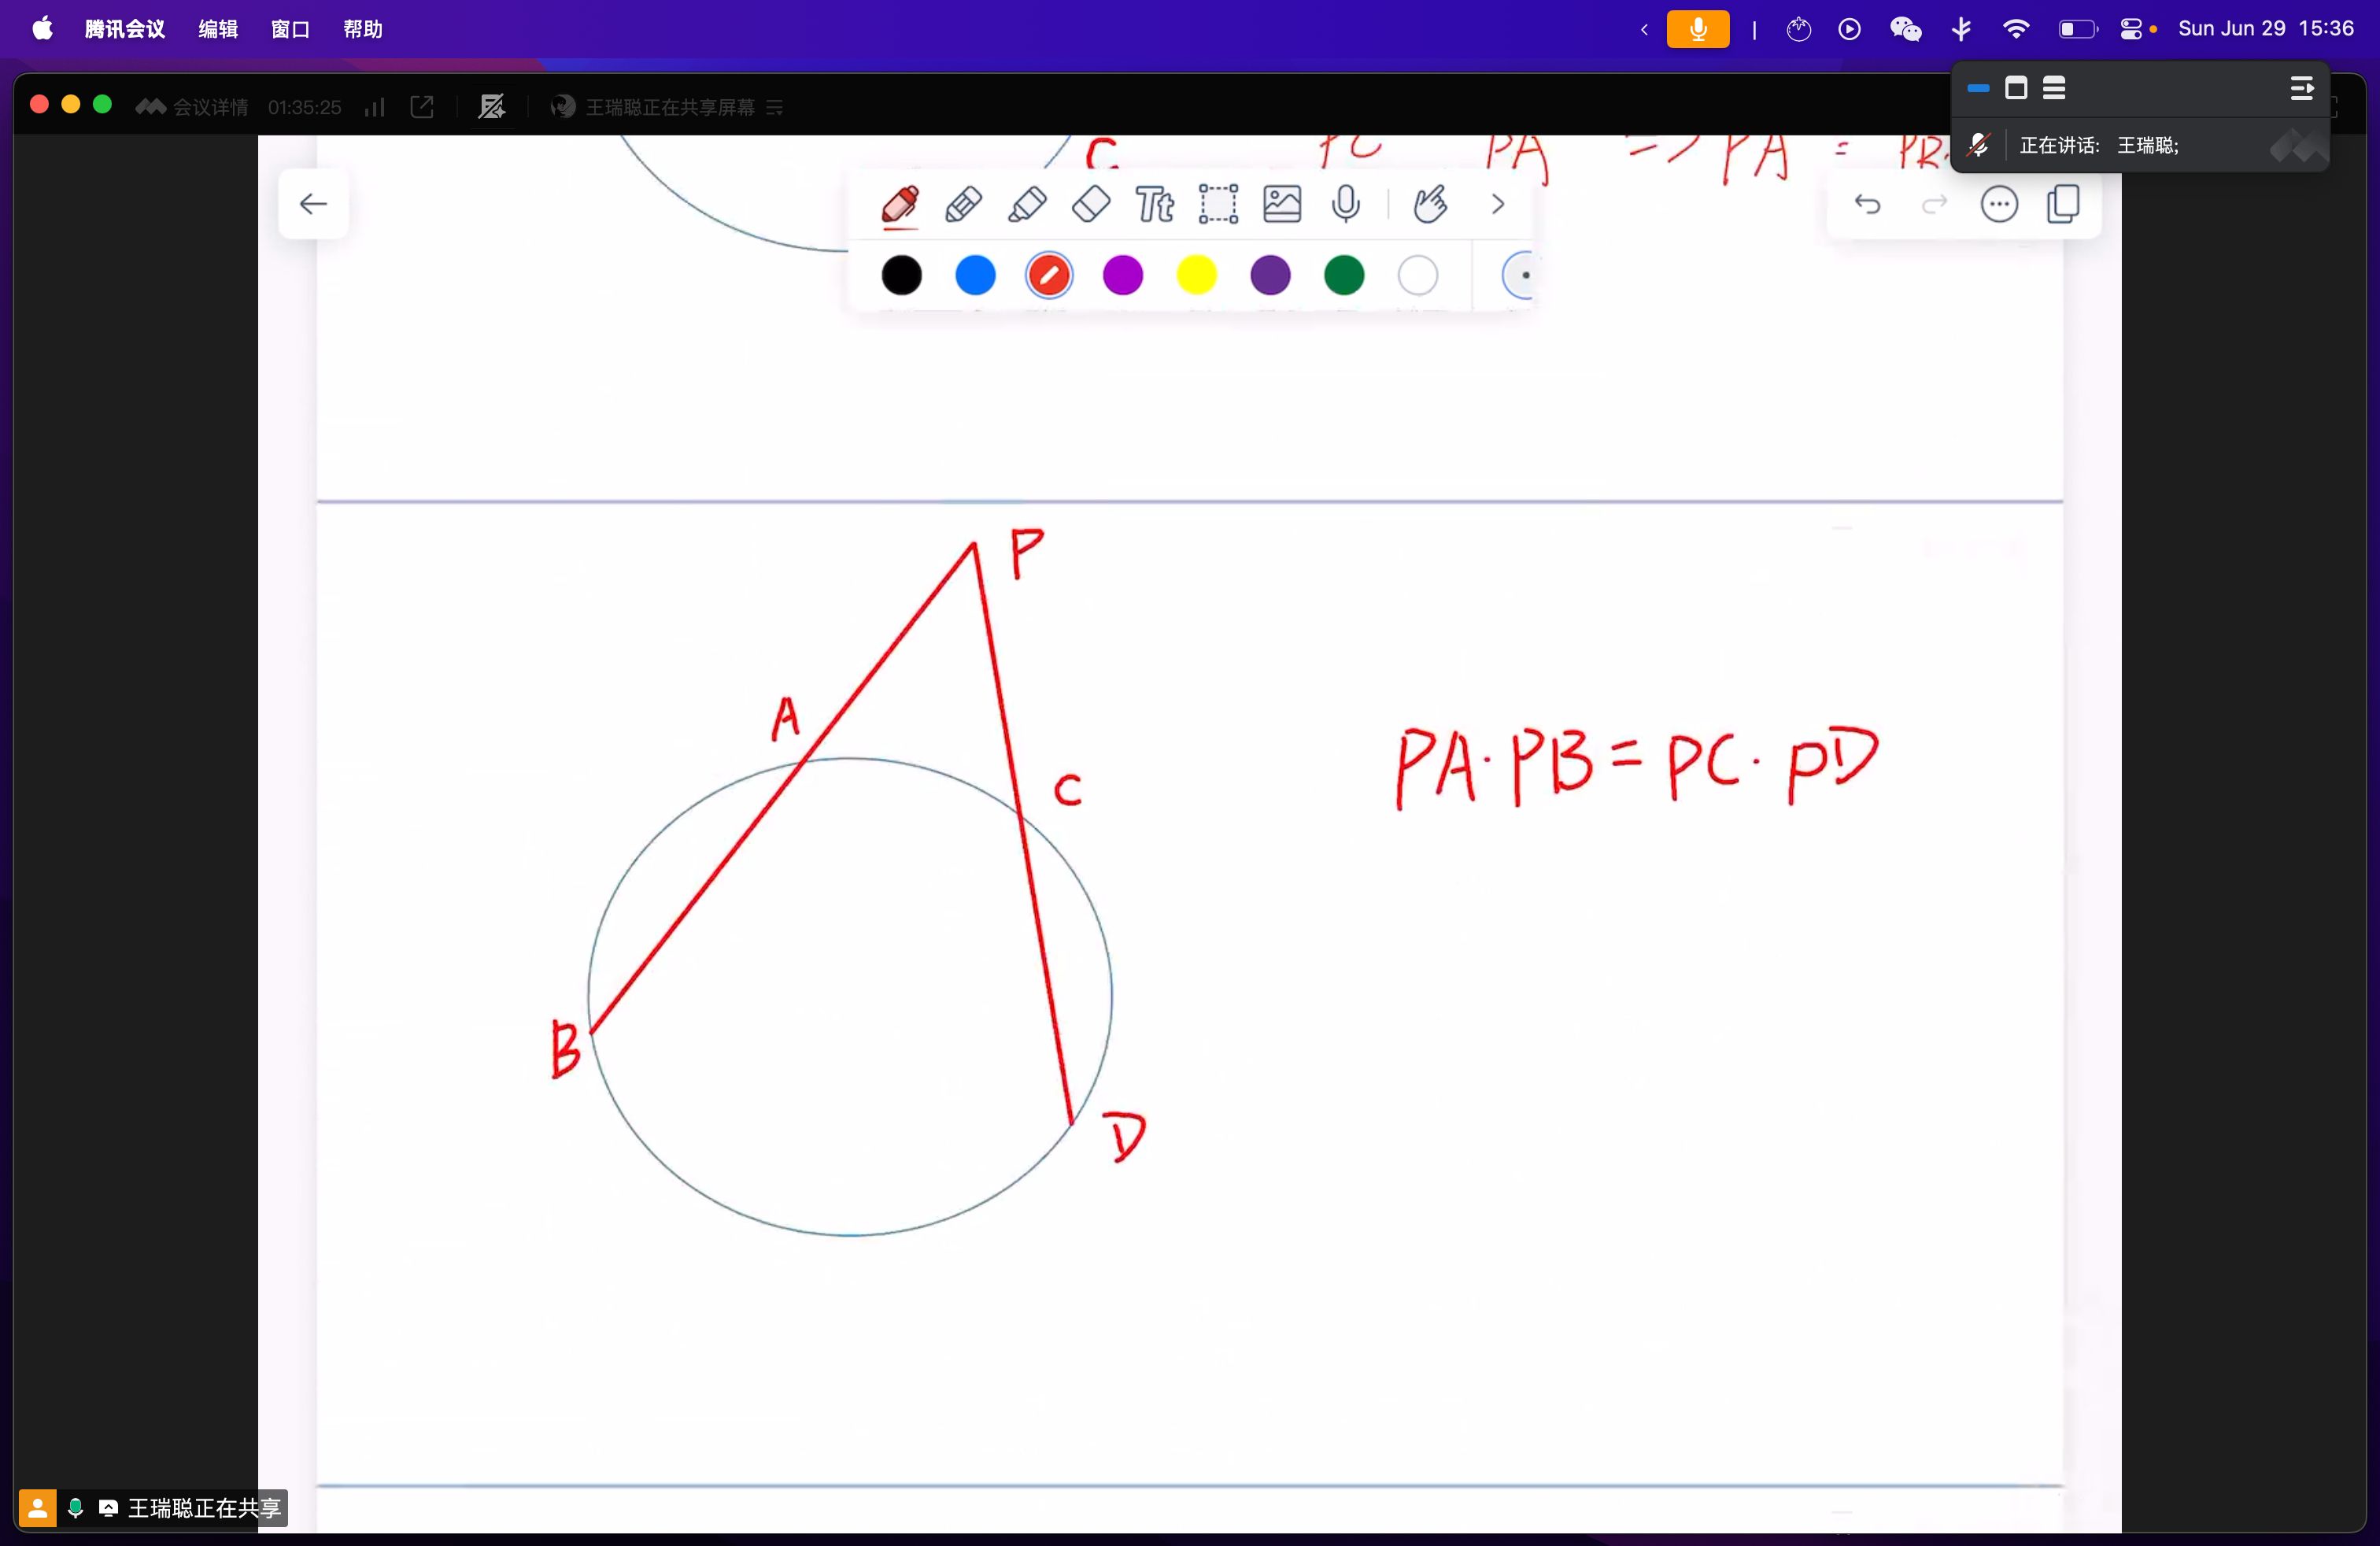 腾讯会议 编辑 窗口 帮助 Sun Jun 29 15:36
会议详情 01:35:25 王瑞聪正在共享屏幕
正在讲话: 王瑞聪;
C PC PA => PA = PB.
Tt
P
A
C
PA·PB=PC·PD
B
D
王瑞聪正在共享